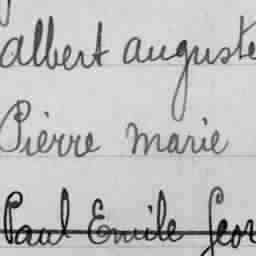 albert auguste
Pièrre marie
Paul Emile Geor